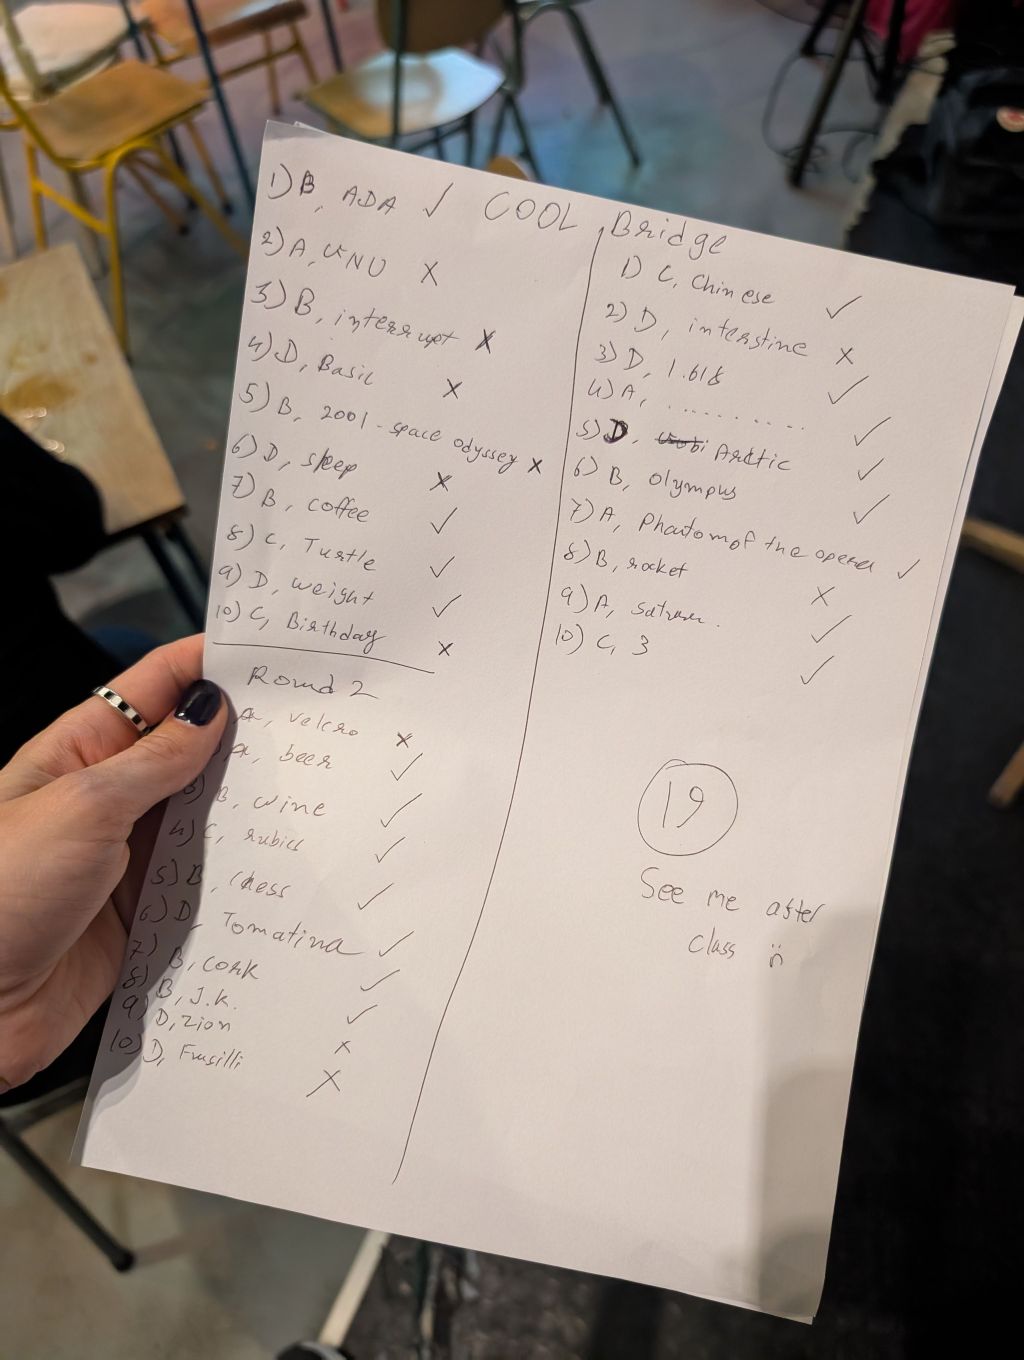 COOL Bridge
1) B, ADA ✓
2) A, UNU X
3) B, interrupt X
4) D, Basic X
5) B, 2001 - space odyssey X
6) D, sleep X
7) B, coffee ✓
8) C, Turtle ✓
9) D, weight ✓
10) C, Birthday X
Round 2
A, velcro X
A, beer ✓
3) B, wine ✓
4) C, rubics ✓
5) B, chess ✓
6) D, Tomatina ✓
7) B, cork ✓
8) B, J.K. ✓
9) D, Zion X
10) D, Fusilli X
1) C, Chinese ✓
2) D, interstine X
3) D, 1.618 ✓
4) A, ......... ✓
5) D, Arctic ✓
6) B, Olympus ✓
7) A, Phantom of the opera ✓
8) B, rocket X
9) A, saturn. ✓
10) C, 3 ✓
19
See me after
class